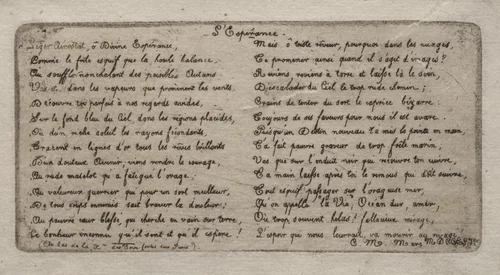 L'Espérance.
Léger Aérostat, ô Divine Espérance,
Comme le frêle esquif que la houle balance
Au souffle nonchalant des paisibles Autans
dans les vapeurs que promènent les vents.
Découvre toi parfois à nos regards avides,
Sur le fond bleu du Ciel, dans les régions placides,
Où d'un riche soleil les rayons
en lignes d'or tous les rêves brillants
D'un douteux Avenir; viens rendre le courage,
Au rude matelot qu'a fatigué l'orage;
Au valoureux guerrier qui pour un sort meilleur,
De tous temps murmurais sait braver la douleur;
Au pauvre cœur blessé, qui cherche en vain sur terre,
Le bonheur inconnu qu'il sent et qu'il espère!
Mais, ô triste rêveur, pourquoi dans les nuages,
Te promener ainsi quand il s'agit d'images?
Reviens, reviens à terre et laisse là le soin,
D'escalader du Ciel le trop rude chemin;
Crains de tenter du sort le caprice bizarre.
Toujours de ses faveurs pour nous il est avare.
Puisqu'un Destin nouveau t'a mis la pointe en main,
T'a fait pauvre graveur de trop frêle
que sur l'enduit noir qui recouvre ton cuivre,
Ta main laisse après toi le remous qui doit suivre,
Tout esquif passager sur l'orageuse mer,
Qu'on appelle la Vie, Océan dur, amer,
Où trop souvent hélas! fallacieux mirage,
L'espoir qui nous leurrait, va mourir au rivage.
C. M.